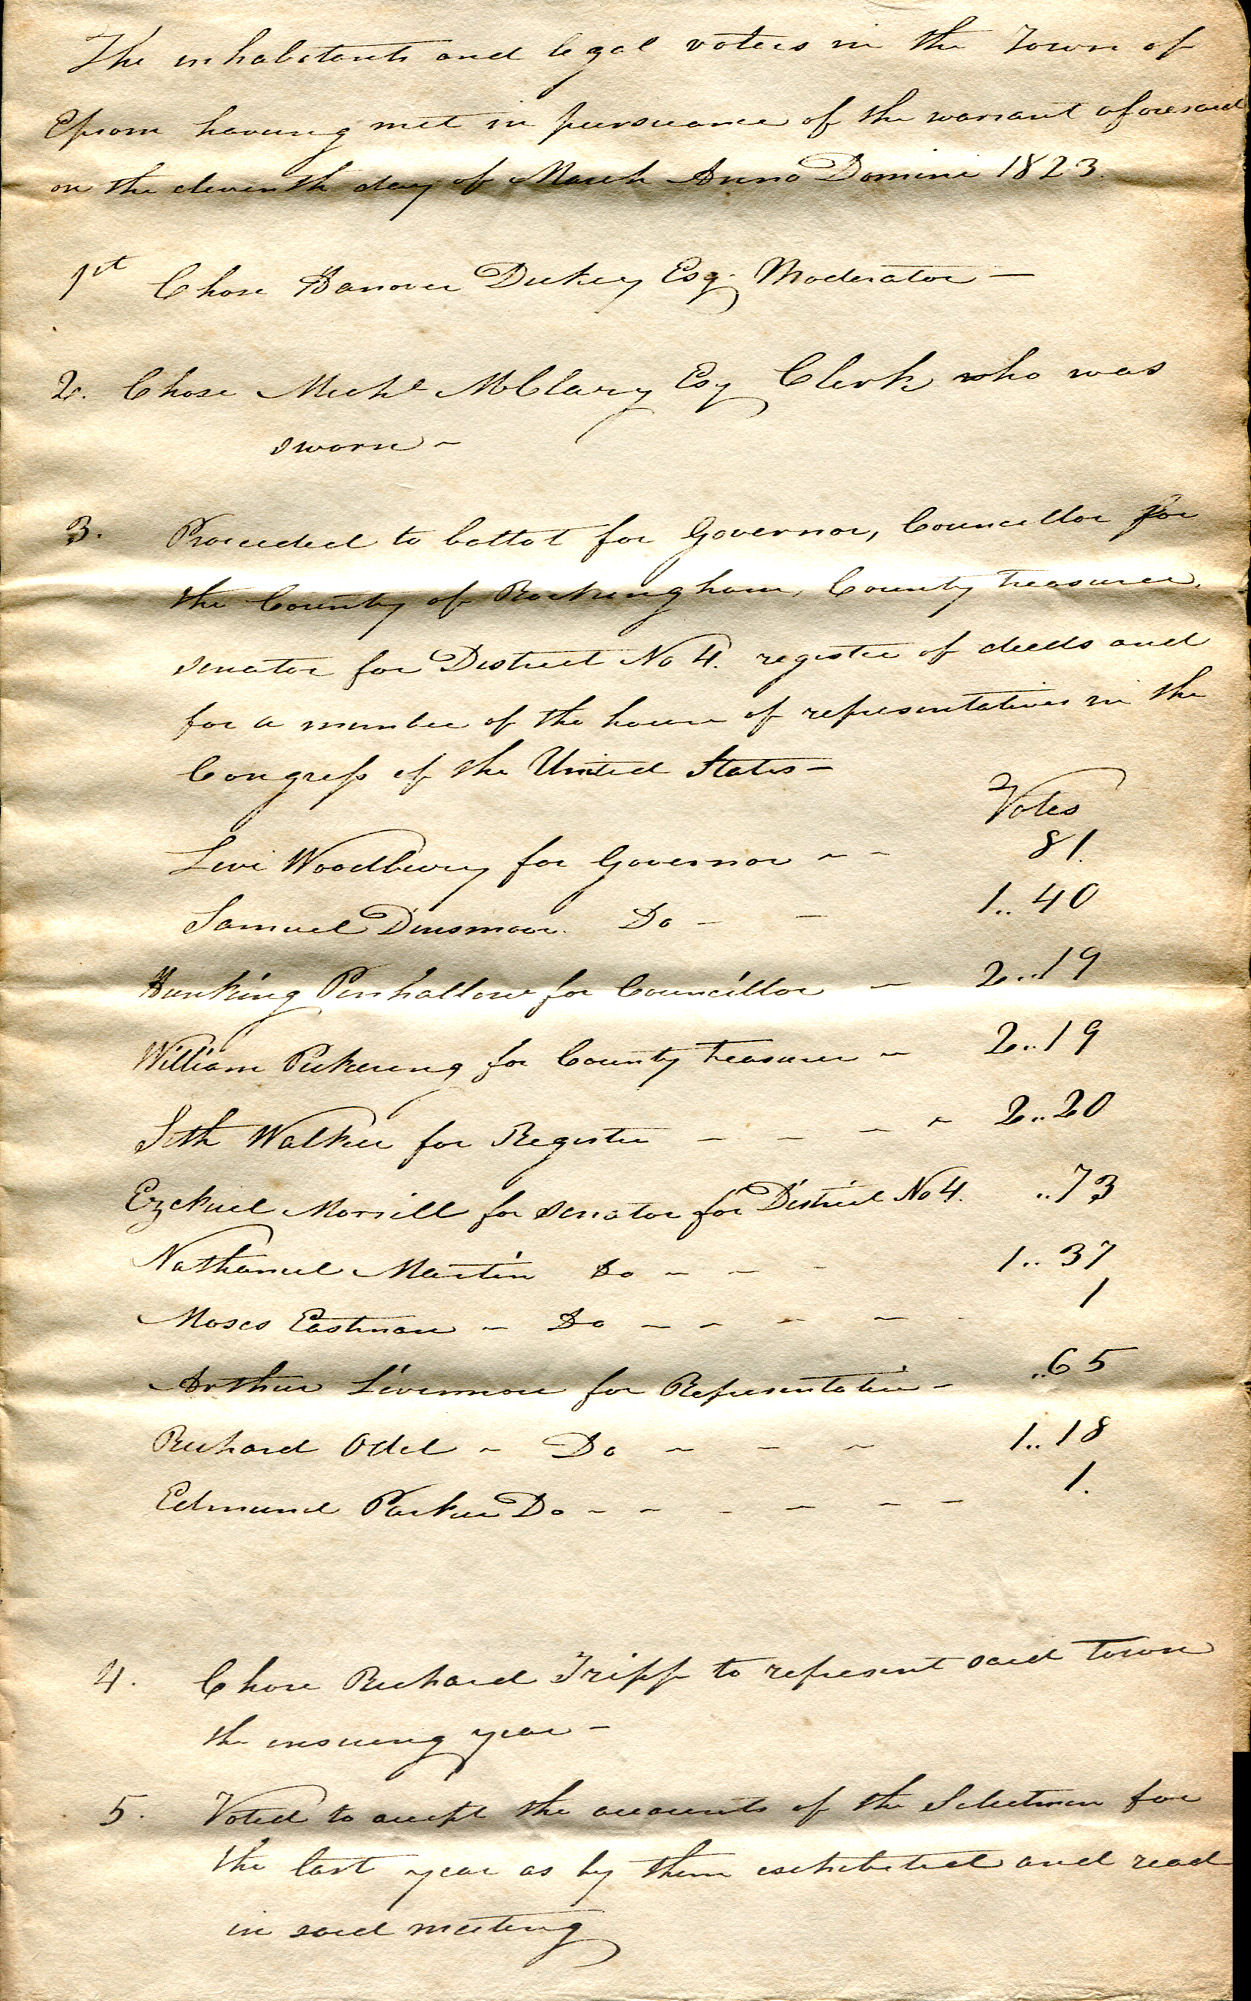 The inhabitants and legal voters in the Town of
Epsom having met in pursuance of the warrant aforesaid
on the eleventh day of March Anno Domini 1823.
1st Chose Hanover Dickey Esq. Moderator —
2. Chose Michl McClary Esq Clerk who was
sworn –
3. Proceeded to ballot for Governor, Councellor for
the County of Rockingham, County treasurer,
senator for District No 4. register of deeds and
for a member of the house of representatives in the
Congress of the United States –
Votes
Levi Woodbury for Governor – – 81.
Samuel Dinsmoor. Do – – 1..40
Hunking Penhallow for Councillor – 2..19
William Pickering for County treasurer – 2..19
Seth Walker for Register – – – – 2..20
Ezekiel Morrill for senator for District No 4. ..73
Nathaniel Martin Do – – – 1..37
Moses Eastman – Do – – – – 1
Arthur Livermore for Representative – ..65
Richard Odel – Do – – – 1..18
Edmund Parker Do – – – – – – 1.
4. Chose Richard Tripp to represent said Town
the insuing year –
5. Voted to accept the accounts of the Selectmen for
the last year as by them exhibited and read
in said meeting